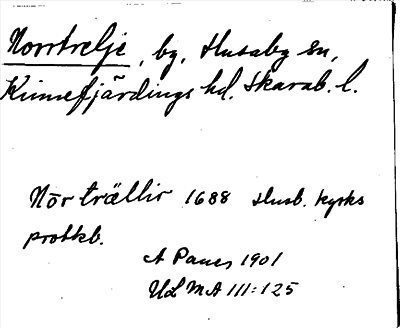 Norrtrelje, by, Husaby sn,
Kinnefjärdings hd. Skarab. l.
Nör trällir 1688 Husb. kyrks
protkb.
A Paues 1901
ULMA 111:125